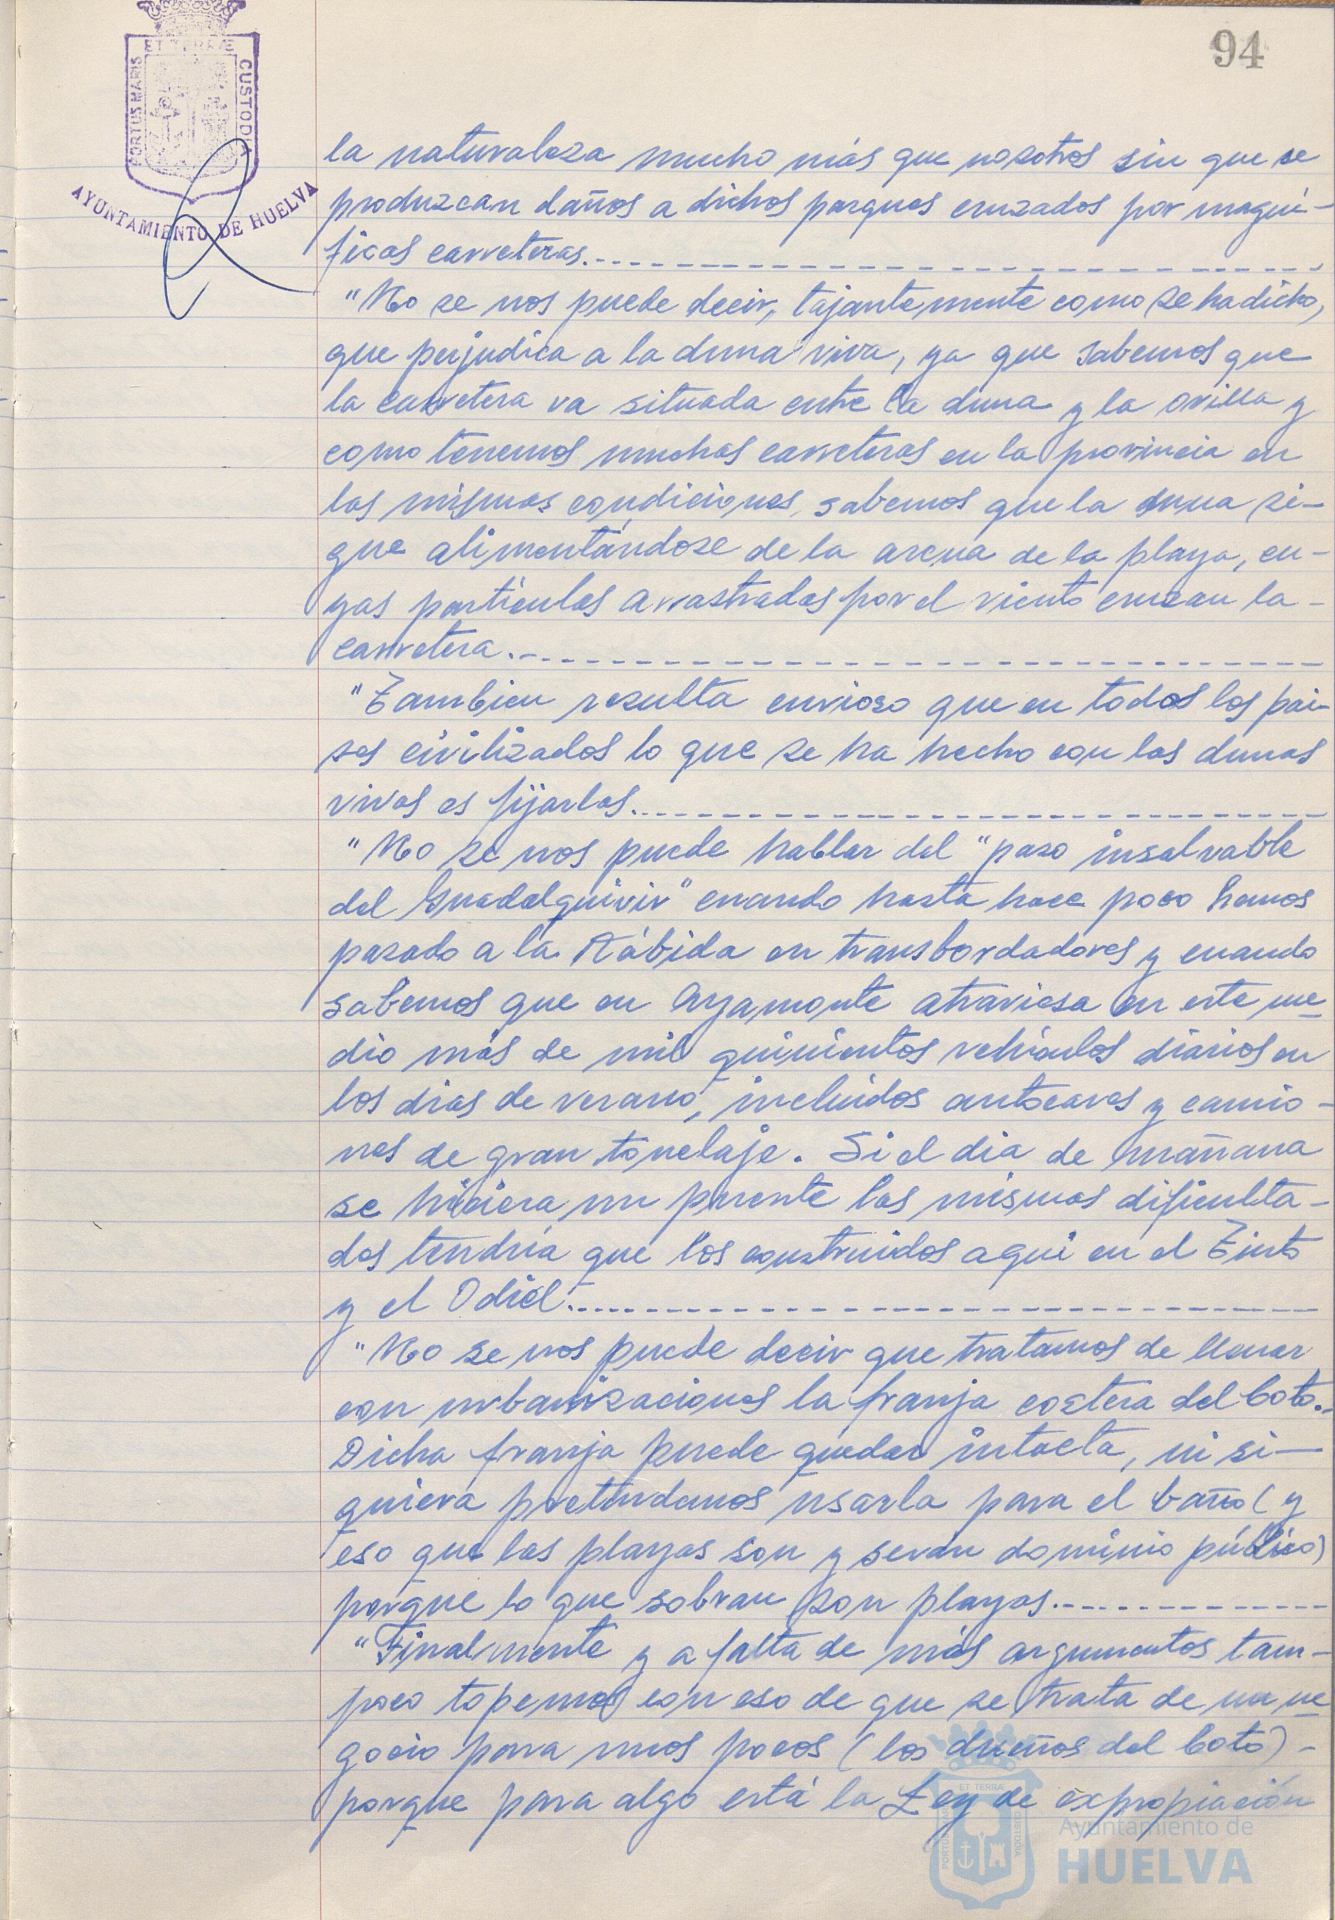 94
ET TERRÆ
PORTUS MARIS
CUSTODIA
AYUNTAMIENTO DE HUELVA
la naturaleza mucho más que nosotros sin que se
produzcan daños a dichos parques cruzados por magní-
ficas carreteras.
"No se nos puede decir, tajantemente como se ha dicho,
que perjudica a la duna viva, ya que sabemos que
la carretera va situada entre la duna y la orilla y
como tenemos muchas carreteras en la provincia en
las mismas condiciones, sabemos que la duna si-
gue alimentándose de la arena de la playa, cu-
yas partículas arrastradas por el viento cruzan la-
carretera.-
"Tambien resulta curioso que en todos los pai-
ses civilizados lo que se ha hecho con las dunas
vivas es fijarlas.
"No se nos puede hablar del "paso insalvable
del Guadalquivir" cuando hasta hace poco hemos
pasado a la Rábida en transbordadores y cuando
sabemos que en Ayamonte atraviesa en este me
dio más de mil quinientos vehículos diarios en
los dias de verano, incluidos autocares y camio-
nes de gran tonelaje. Si el dia de mañana
se hiciera un puente las mismas dificulta-
des tendría que los construidos aquí en el Tinto
y el Odiel.
"No se nos puede decir que tratamos de llenar
con urbanizaciones la franja costera del Coto.-
Dicha franja puede quedar intacta, ni si-
quiera pretendamos usarla para el baño (y
eso que las playas son y serán dominio público)
porque lo que sobran son playas.
"Finalmente y a falta de más argumentos tam-
poco topemos con eso de que se trata de un ne
gocio para unos pocos (los dueños del Coto)-
porque para algo está la Ley de expropiación
ET TERRÆ
PORTUS MARIS
CUSTODIA
Ayuntamiento de
HUELVA